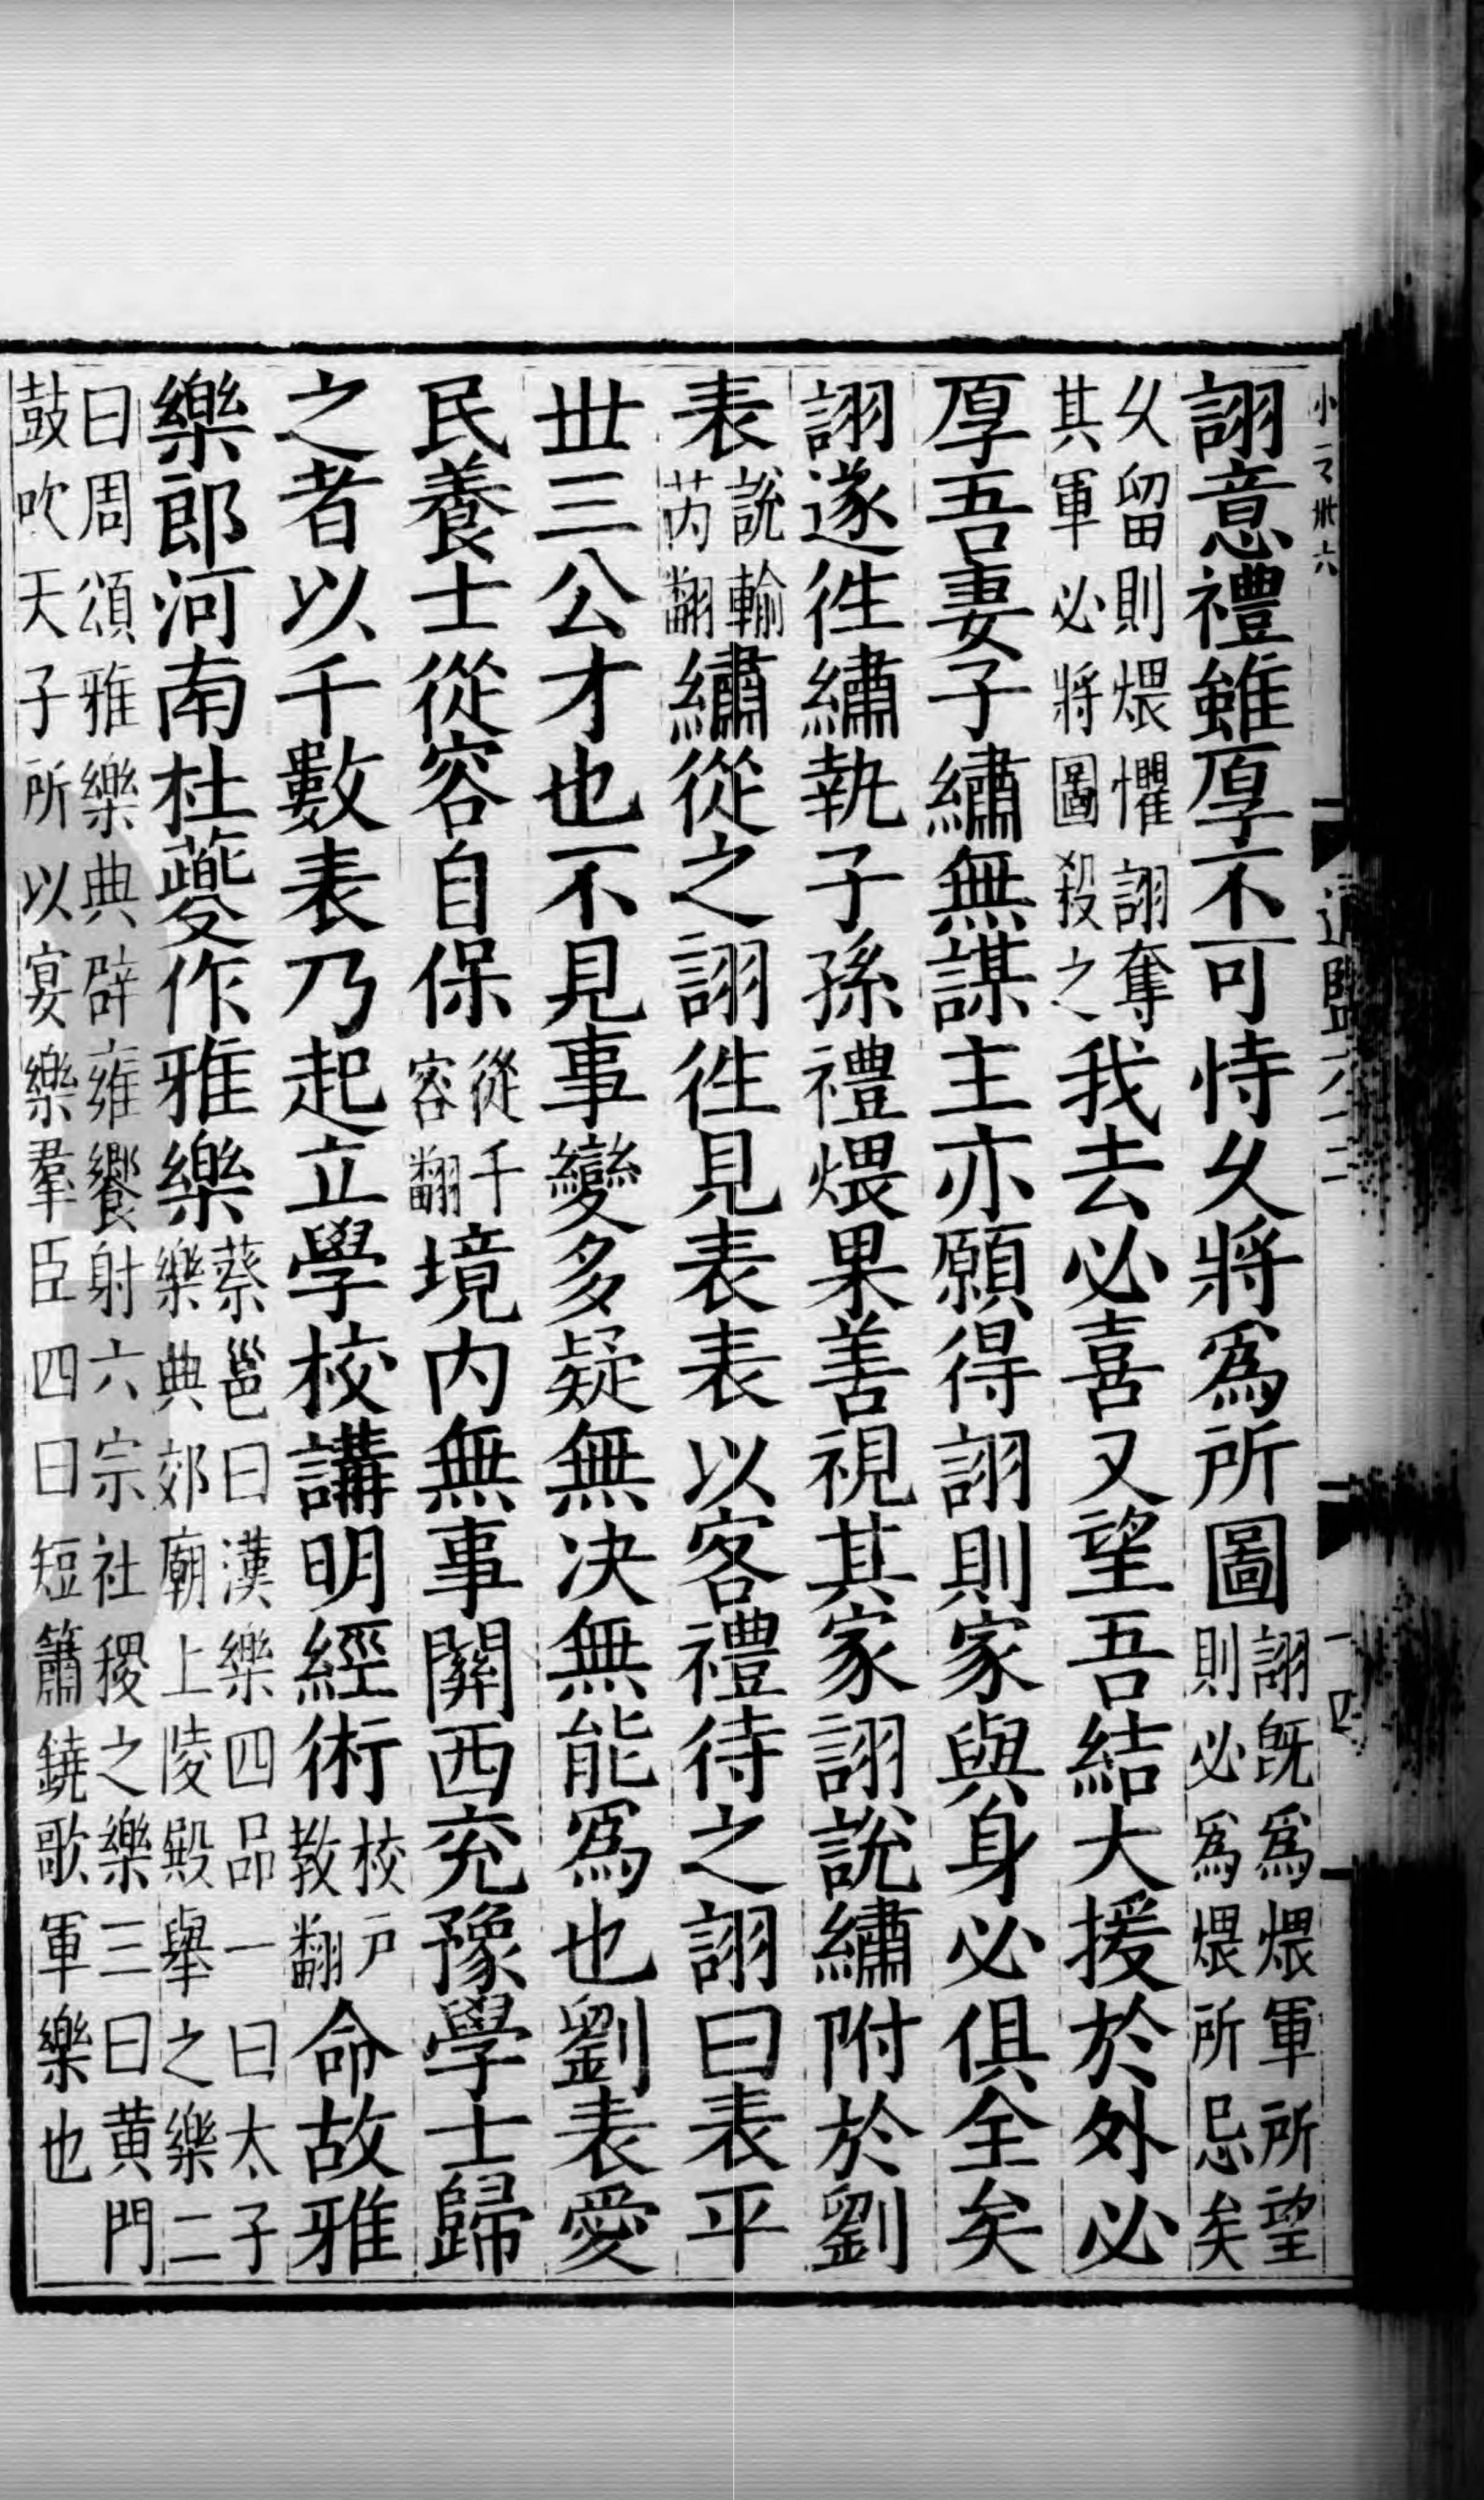 詡意禮雖厚不可恃久將爲所圖詡旣爲煨軍所望則必爲煨所忌矣
久留則煨懼詡奪其軍必將圖殺之我去必喜又望吾結大援於外必
厚吾妻子繡無謀主亦願得詡則家與身必俱全矣
詡遂徃繡執子孫禮煨果善視其家詡說繡附於劉
表說輸芮翻繡從之詡徃見表表以客禮待之詡曰表平
丗三公才也不見事變多疑無决無能爲也劉表愛
民養士從容自保從千容翻境内無事關西兖豫學士歸
之者以千數表乃起立學校講明經術校戸敎翻命故雅
樂郎河南杜夔作雅樂蔡邕曰漢樂四品一曰太子樂典郊廟上陵殿舉之樂二
曰周頌雅樂典辟雍饗射六宗社稷之樂三曰黄門鼓吹天子所以宴樂羣臣四曰短簫鐃歌軍樂也